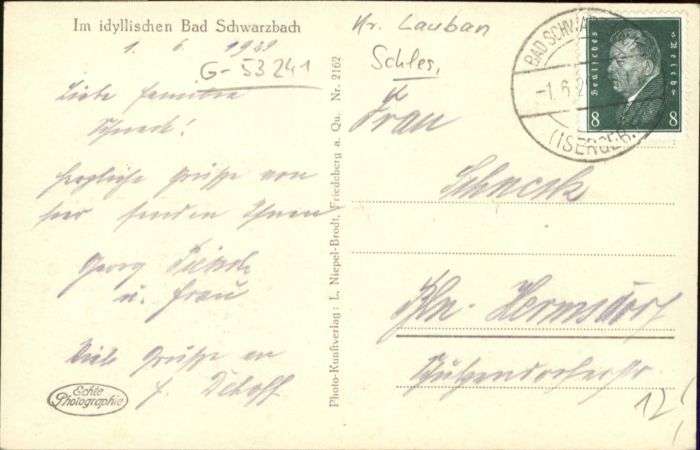 Im idyllischen Bad Schwarzbach
1. 6. 1929
G-53241
Liebe Familie
Schneck!
Herzliche Grüße von
hier senden Ihnen
Georg
u. Frau
Viele Grüße an
H.
Echte
Photographie
Photo-Kunstverlag: L. Niepel-Brodt, Friedeberg a. Qu. Nr. 2162
Kr. Lauban
Schles.
Frau
Schneck
Bln. Hermsdorf
12
BAD SCHWAR
-1.6.2
(ISERGEB.
Deutsches Reich
8 8